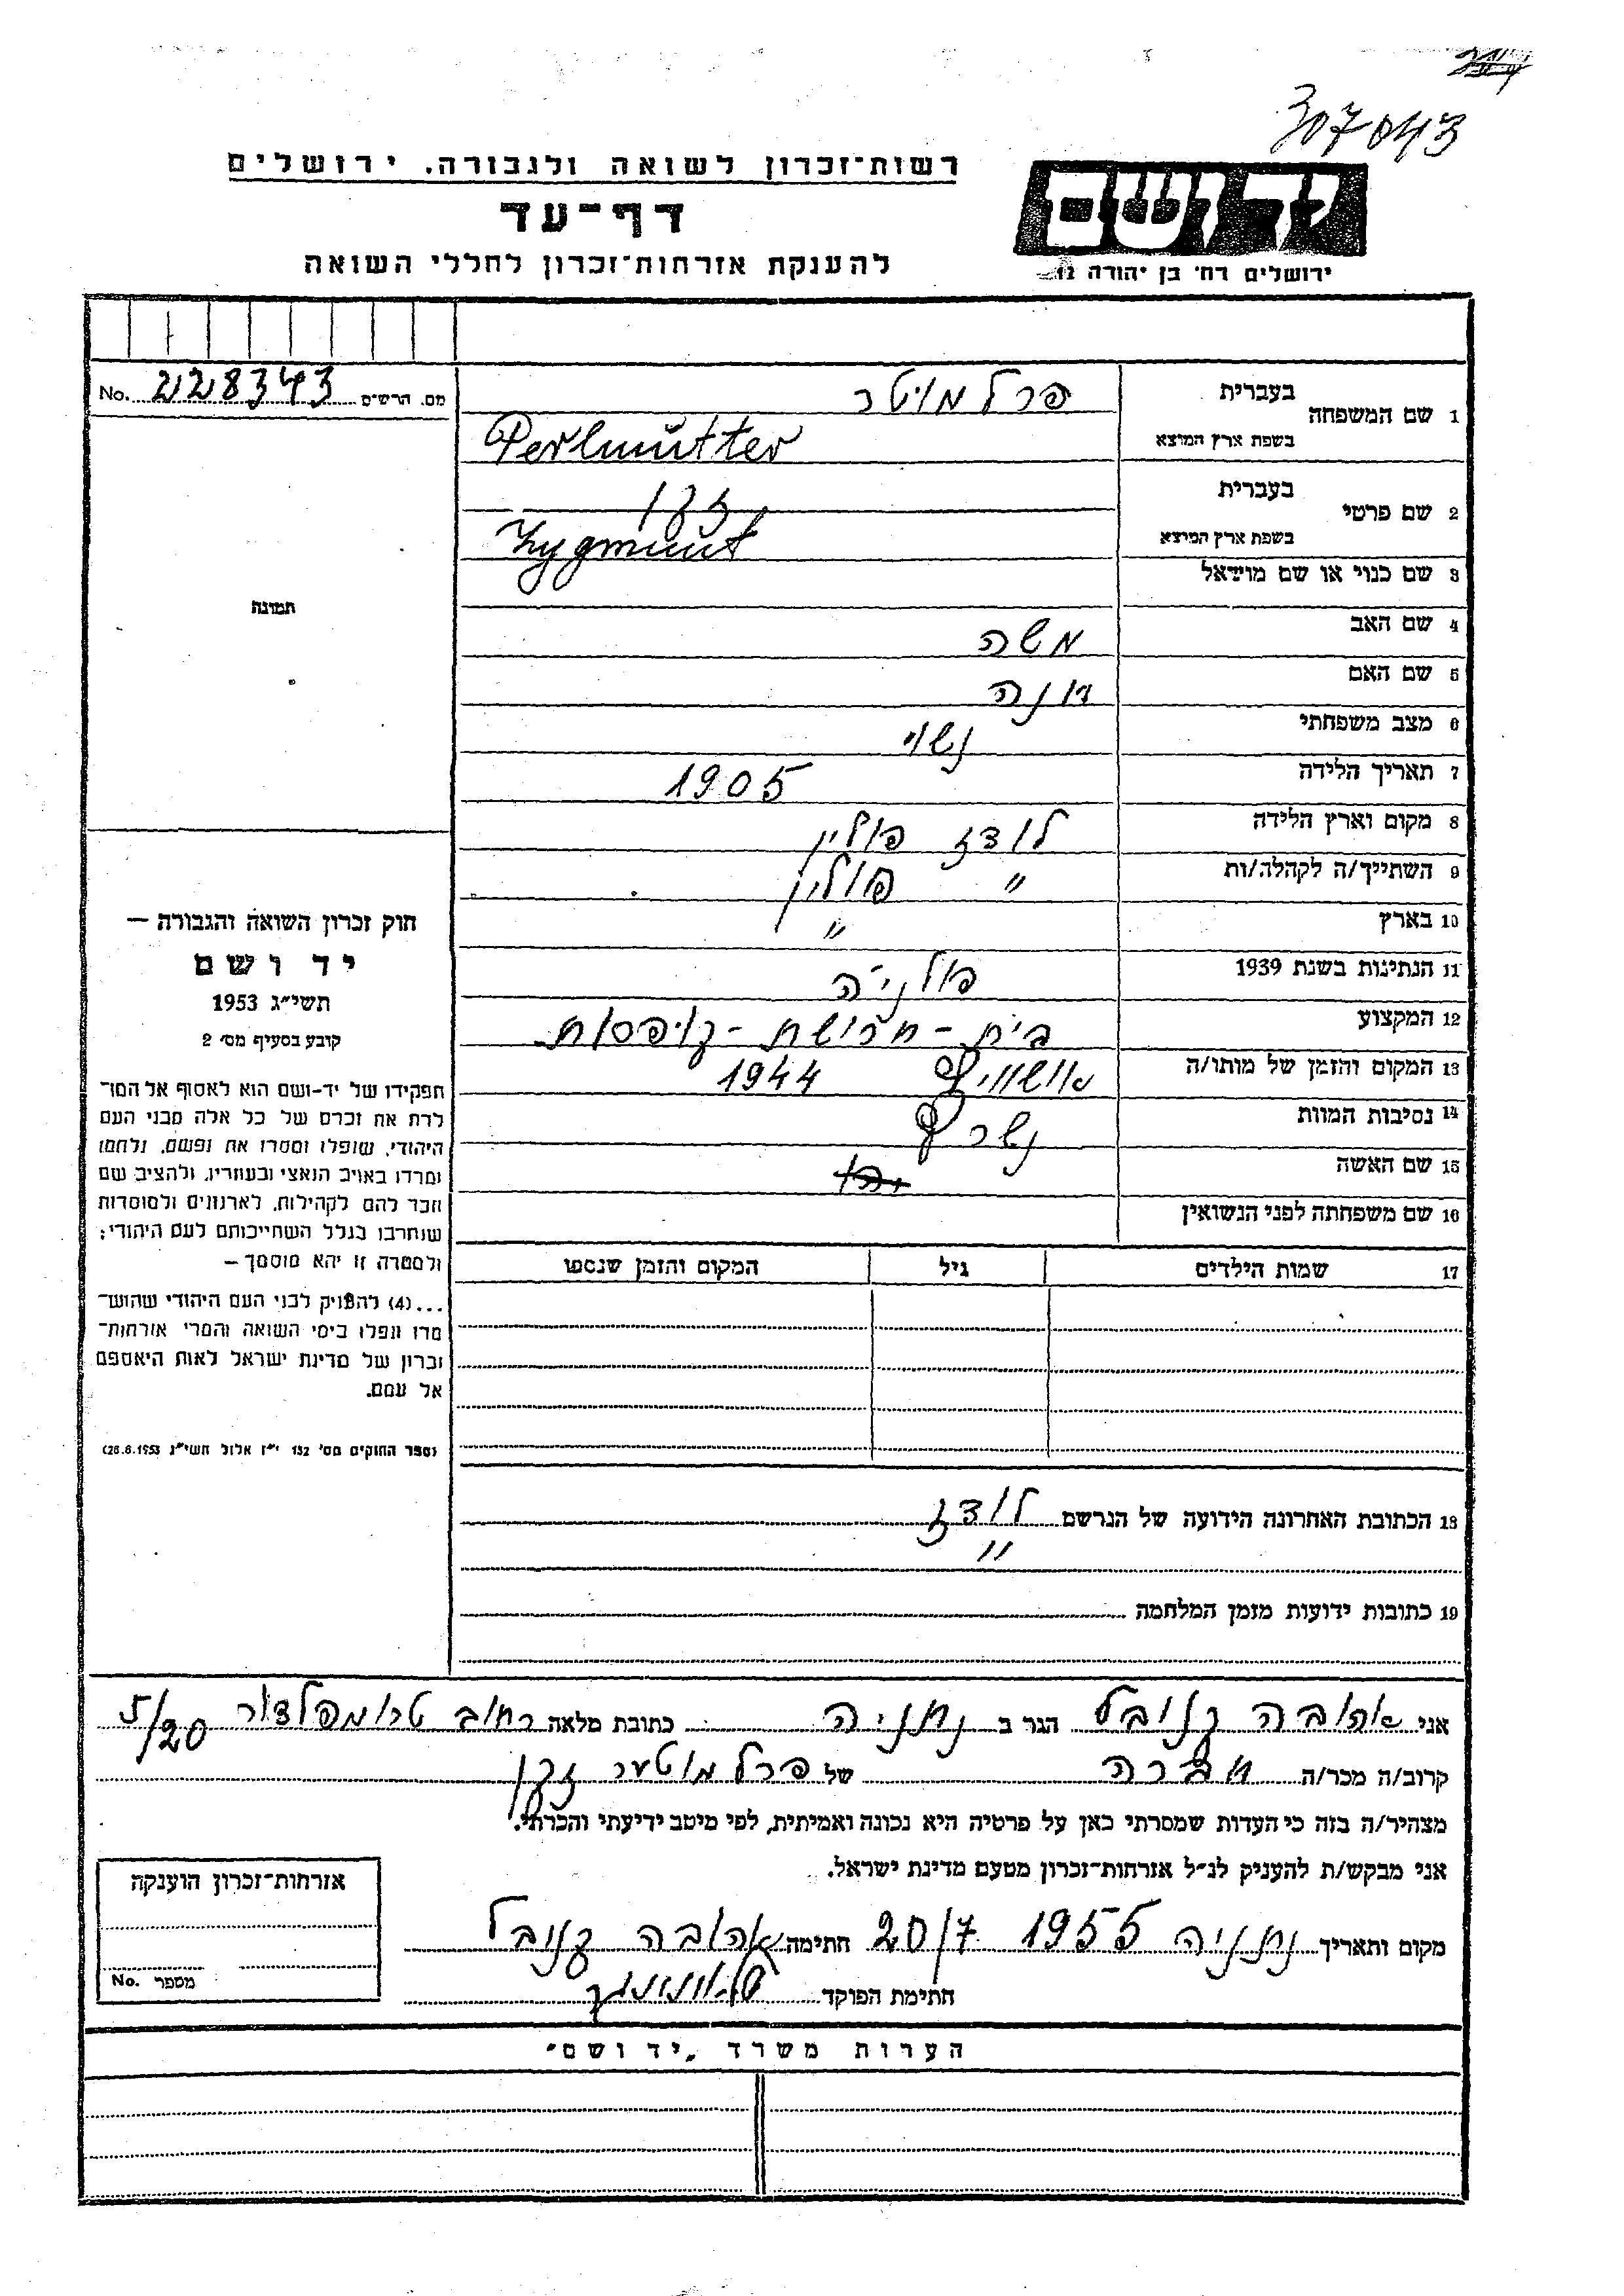 307043
רשות־זכרון לשואה ולגבורה. ירושלים
דף־עד
להענקת אזרחות־זכרון לחללי השואה
יד ושם
ירושלים רח׳ בן יהודה 12
מס. הרשים No. 228343
1 שם המשפחה בעברית פרלמוטר
בשפת ארץ המוצא Perlmutter
2 שם פרטי בעברית זקן
בשפת ארץ המוצא Zygmunt
3 שם כנוי או שם מושאל
4 שם האב משה
5 שם האם
6 מצב משפחתי נשוי
7 תאריך הלידה 1905
8 מקום וארץ הלידה לודז פולין
9 השתייך/ה לקהלה/ות " פולין
10 בארץ "
11 הנתינות בשנת 1939 פולניה
12 המקצוע בית-חרושת-קופסות
13 המקום והזמן של מותו/ה אושוויץ 1944
14 נסיבות המוות נשרף
15 שם האשה
16 שם משפחתה לפני הנשואין
17 שמות הילדים גיל המקום והזמן שנספו
18 הכתובת האחרונה הידועה של הנרשם לודז
"
19 כתובות ידועות מזמן המלחמה
תמונה
חוק זכרון השואה והגבורה —
יד ושם
תשי״ג 1953
קובע בסעיף מס׳ 2
תפקידו של יד-ושם הוא לאסוף אל המו־
לדת את זכרם של כל אלה מבני העם
היהודי, שנפלו ומסרו את נפשם, נלחמו
ומרדו באויב הנאצי ובעוזריו, ולהציב שם
וזכר להם לקהילות, לארגונים ולמוסדות
שנחרבו בגלל השתייכותם לעם היהודי;
ולמטרה זו יהא מוסמך —
...(4) להעניק לבני העם היהודי שהוש־
מדו ונפלו בימי השואה והמרי אזרחות־
זכרון של מדינת ישראל לאות היאספם
אל עמם.
(ספר החוקים מס׳ 132 י״ז אלול תשי״ג 28.8.1953)
אני אהובה קנובל הגר ב נתניה כתובת מלאה רחוב טרומפלדור 5/20
קרוב/ה מכר/ה מכרה של פרלמוטער זקן
מצהיר/ה בזה כי העדות שמסרתי כאן על פרטיה היא נכונה ואמיתית, לפי מיטב ידיעתי והכרתי.
אני מבקש/ת להעניק לנ״ל אזרחות־זכרון מטעם מדינת ישראל.
מקום ותאריך נתניה 20/7 1955 חתימה אהובה קנובל
חתימת הפוקד
אזרחות־זכרון הוענקה
מספר No.
הערות משרד „יד ושם״